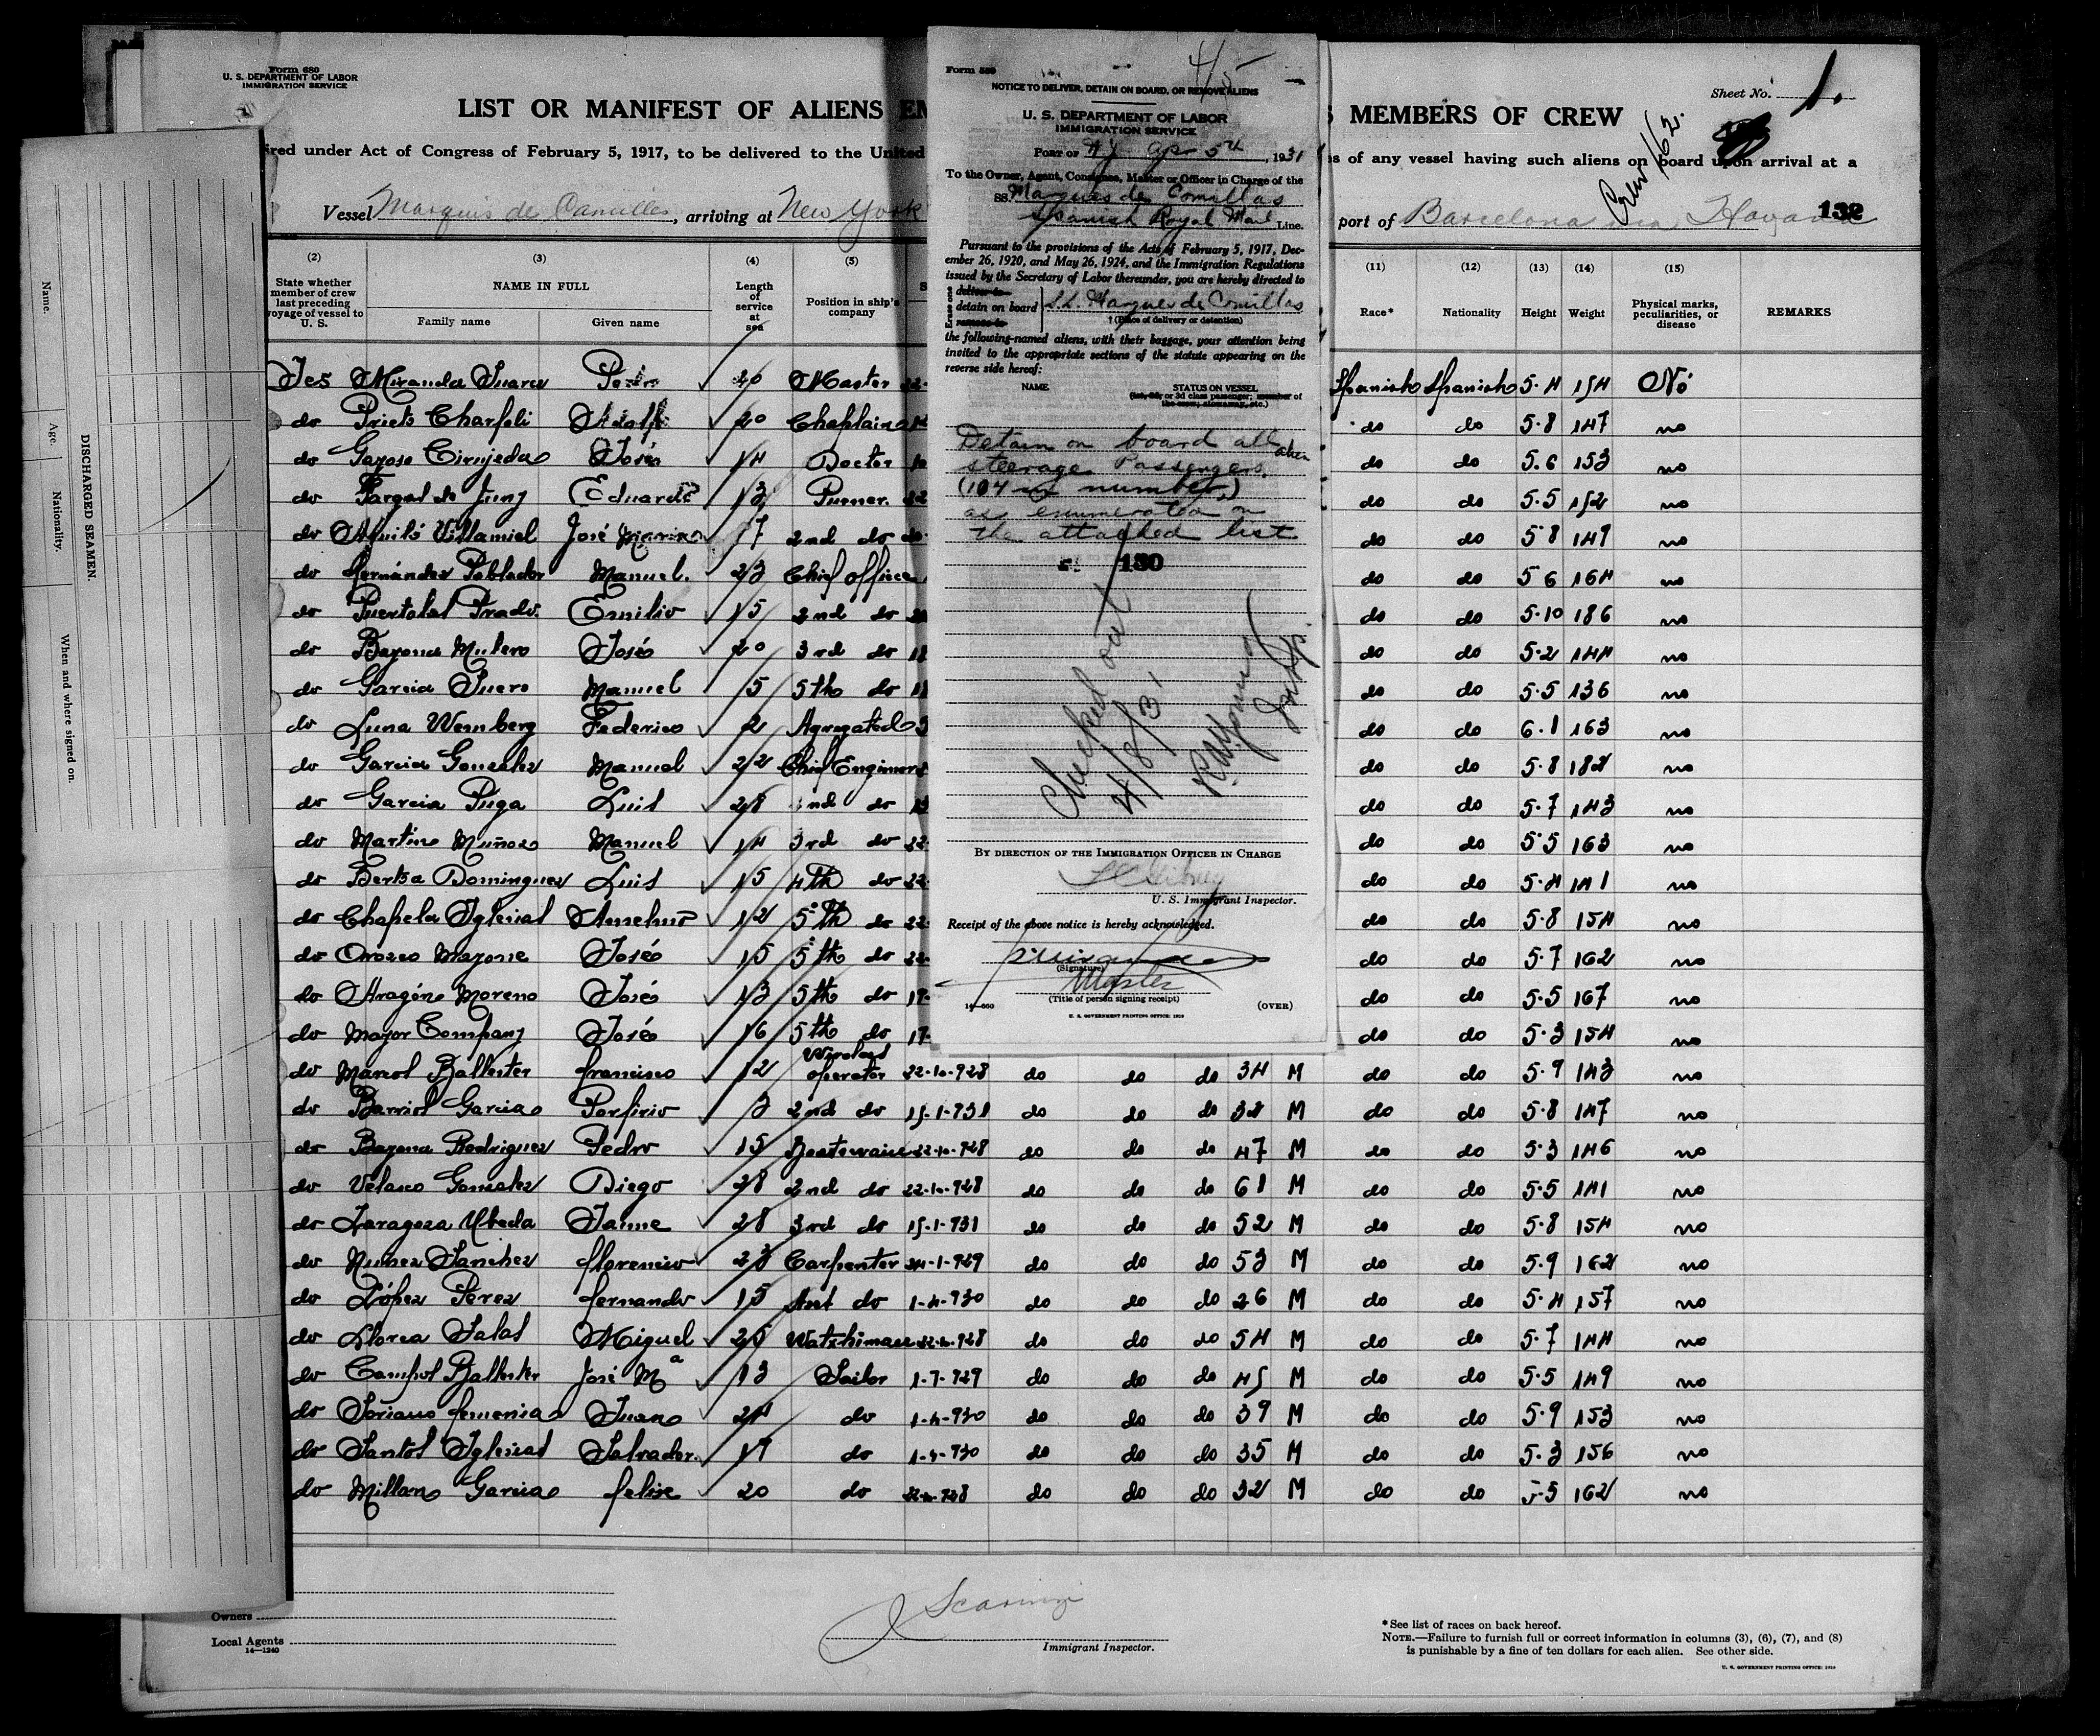 Form 680
U. S. DEPARTMENT OF LABOR
IMMIGRATION SERVICE
Sheet No. 1.
LIST OR MANIFEST OF ALIENS EM
MEMBERS OF CREW
Crew 162.
ired under Act of Congress of February 5, 1917, to be delivered to the United
s of any vessel having such aliens on board upon arrival at a
Vessel Marquis de Camilles, arriving at New York
port of Barcelona via Havana
132
(2) (3) (4) (5)
(11) (12) (13) (14) (15)
State whether member of crew last preceding voyage of vessel to U. S.
NAME IN FULL
Family name Given name
Length of service at sea
Position in ship's company
Race* Nationality Height Weight Physical marks, peculiarities, or disease REMARKS
Yes Miranda Suarez Pedro 20 Master Spanish Spanish 5·4 154 No
do Prieto Charfoli Adolfo 20 Chaplain do do 5·8 147 no
do Gayoso Cirujeda José 14 Doctor do do 5.6 153 no
do Eduardo 13 Purser. do do 5·5 152 no
do Villamiel José 17 2nd do do do 5 8 149 no
do Hernández Poblador Manuel. 23 Chief officer do do 5 6 164 no
do Puertolas Prado. Emilio 15 2nd do do do 5·10 186 no
do Bayona Mulero José 20 3rd do do do 5·2 144 no
do Garcia Suero Manuel 15 5th do do do 5·5 136 no
do Luna Wernberg Federico 2 Agregated do do 6·1 163 no
do Garcia Gonzalez Manuel 22 Chief Engineer do do 5·8 182 no
do Garcia Puga Luis 28 2nd do do do 5·7 143 no
do Martino Muñoz Manuel 14 3rd do do do 5·5 163 no
do Bertsa Dominguez Luis 15 4th do do do 5·4 141 no
do Chapela Iglesias Anselmo 12 5th do do do 5·8 154 no
do Orozco Mayone José 15 5th do do do 5·7 162 no
do Aragón Moreno José 13 5th do do do 5·5 167 no
do Mayor Company José 16 5th do do do 5·3 154 no
do Marcos Ballester Francisco 12 Wireless operator 22-10-928 do do do 34 M do do 5·9 143 no
do Barrios Garcia Porfirio 3 2nd do 15-1-931 do do do 32 M do do 5·8 147 no
do Bayona Rodriguez Pedro 15 Boatswain 22-10-928 do do do 47 M do do 5·3 146 no
do Velasco Gonzalez Diego 28 2nd do 22-10-928 do do do 61 M do do 5·5 141 no
do Zaragoza Ubeda Jaime 28 3rd do 15-1-931 do do do 52 M do do 5·8 154 no
do Nuñez Sanchez Florencio 23 Carpenter 24-1-929 do do do 53 M do do 5·9 162 no
do López Perez Fernando 15 Asst do 1-4-930 do do do 26 M do do 5·4 157 no
do Llorca Salas Miguel 25 Watchman 22-10-928 do do do 54 M do do 5·7 144 no
do Campos Ballester José Mª 13 Sailor 1-7-929 do do do 45 M do do 5·5 149 no
do Soriano Juan 24 do 1-4-930 do do do 39 M do do 5·9 153 no
do Santos Iglesias Salvador. 17 do 1-4-930 do do do 35 M do do 5·3 156 no
do Millan Garcia Felix 20 do 22-10-928 do do do 32 M do do 5·5 162 no
Owners
Local Agents
14—1240
Immigrant Inspector.
*See list of races on back hereof.
NOTE.—Failure to furnish full or correct information in columns (3), (6), (7), and (8)
is punishable by a fine of ten dollars for each alien. See other side.
U. S. GOVERNMENT PRINTING OFFICE: 1930
Name.
Age.
Nationality.
When and where signed on.
DISCHARGED SEAMEN.
Form
4/5
NOTICE TO DELIVER, DETAIN ON BOARD, OR REMOVE ALIENS
U. S. DEPARTMENT OF LABOR
IMMIGRATION SERVICE
PORT OF N.Y. Apr 5th, 1931
To the Owner, Agent, Consignee, Master or Officer in Charge of the
SS. Marques de Comillas
Spanish Royal Mail Line.
Pursuant to the provisions of the Acts of February 5, 1917, Dec-
ember 26, 1920, and May 26, 1924, and the Immigration Regulations
issued by the Secretary of Labor thereunder, you are hereby directed to
Erase one
deliver to
detain on board S.S. Marques de Comillas
remove to
† (Place of delivery or detention)
the following-named aliens, with their baggage, your attention being
invited to the appropriate sections of the statute appearing on the
reverse side hereof:
NAME
STATUS ON VESSEL
(1st, 2d, or 3d class passenger; member of
the crew; stowaway, etc.)
Detain on board all alien
steerage Passengers.
(104 in number,)
as enumerated on
the attached list
130
Checked out
4/8/31
BY DIRECTION OF THE IMMIGRATION OFFICER IN CHARGE
U. S. Immigrant Inspector.
Receipt of the above notice is hereby acknowledged.
(Signature)
Master
(Title of person signing receipt)
(OVER)